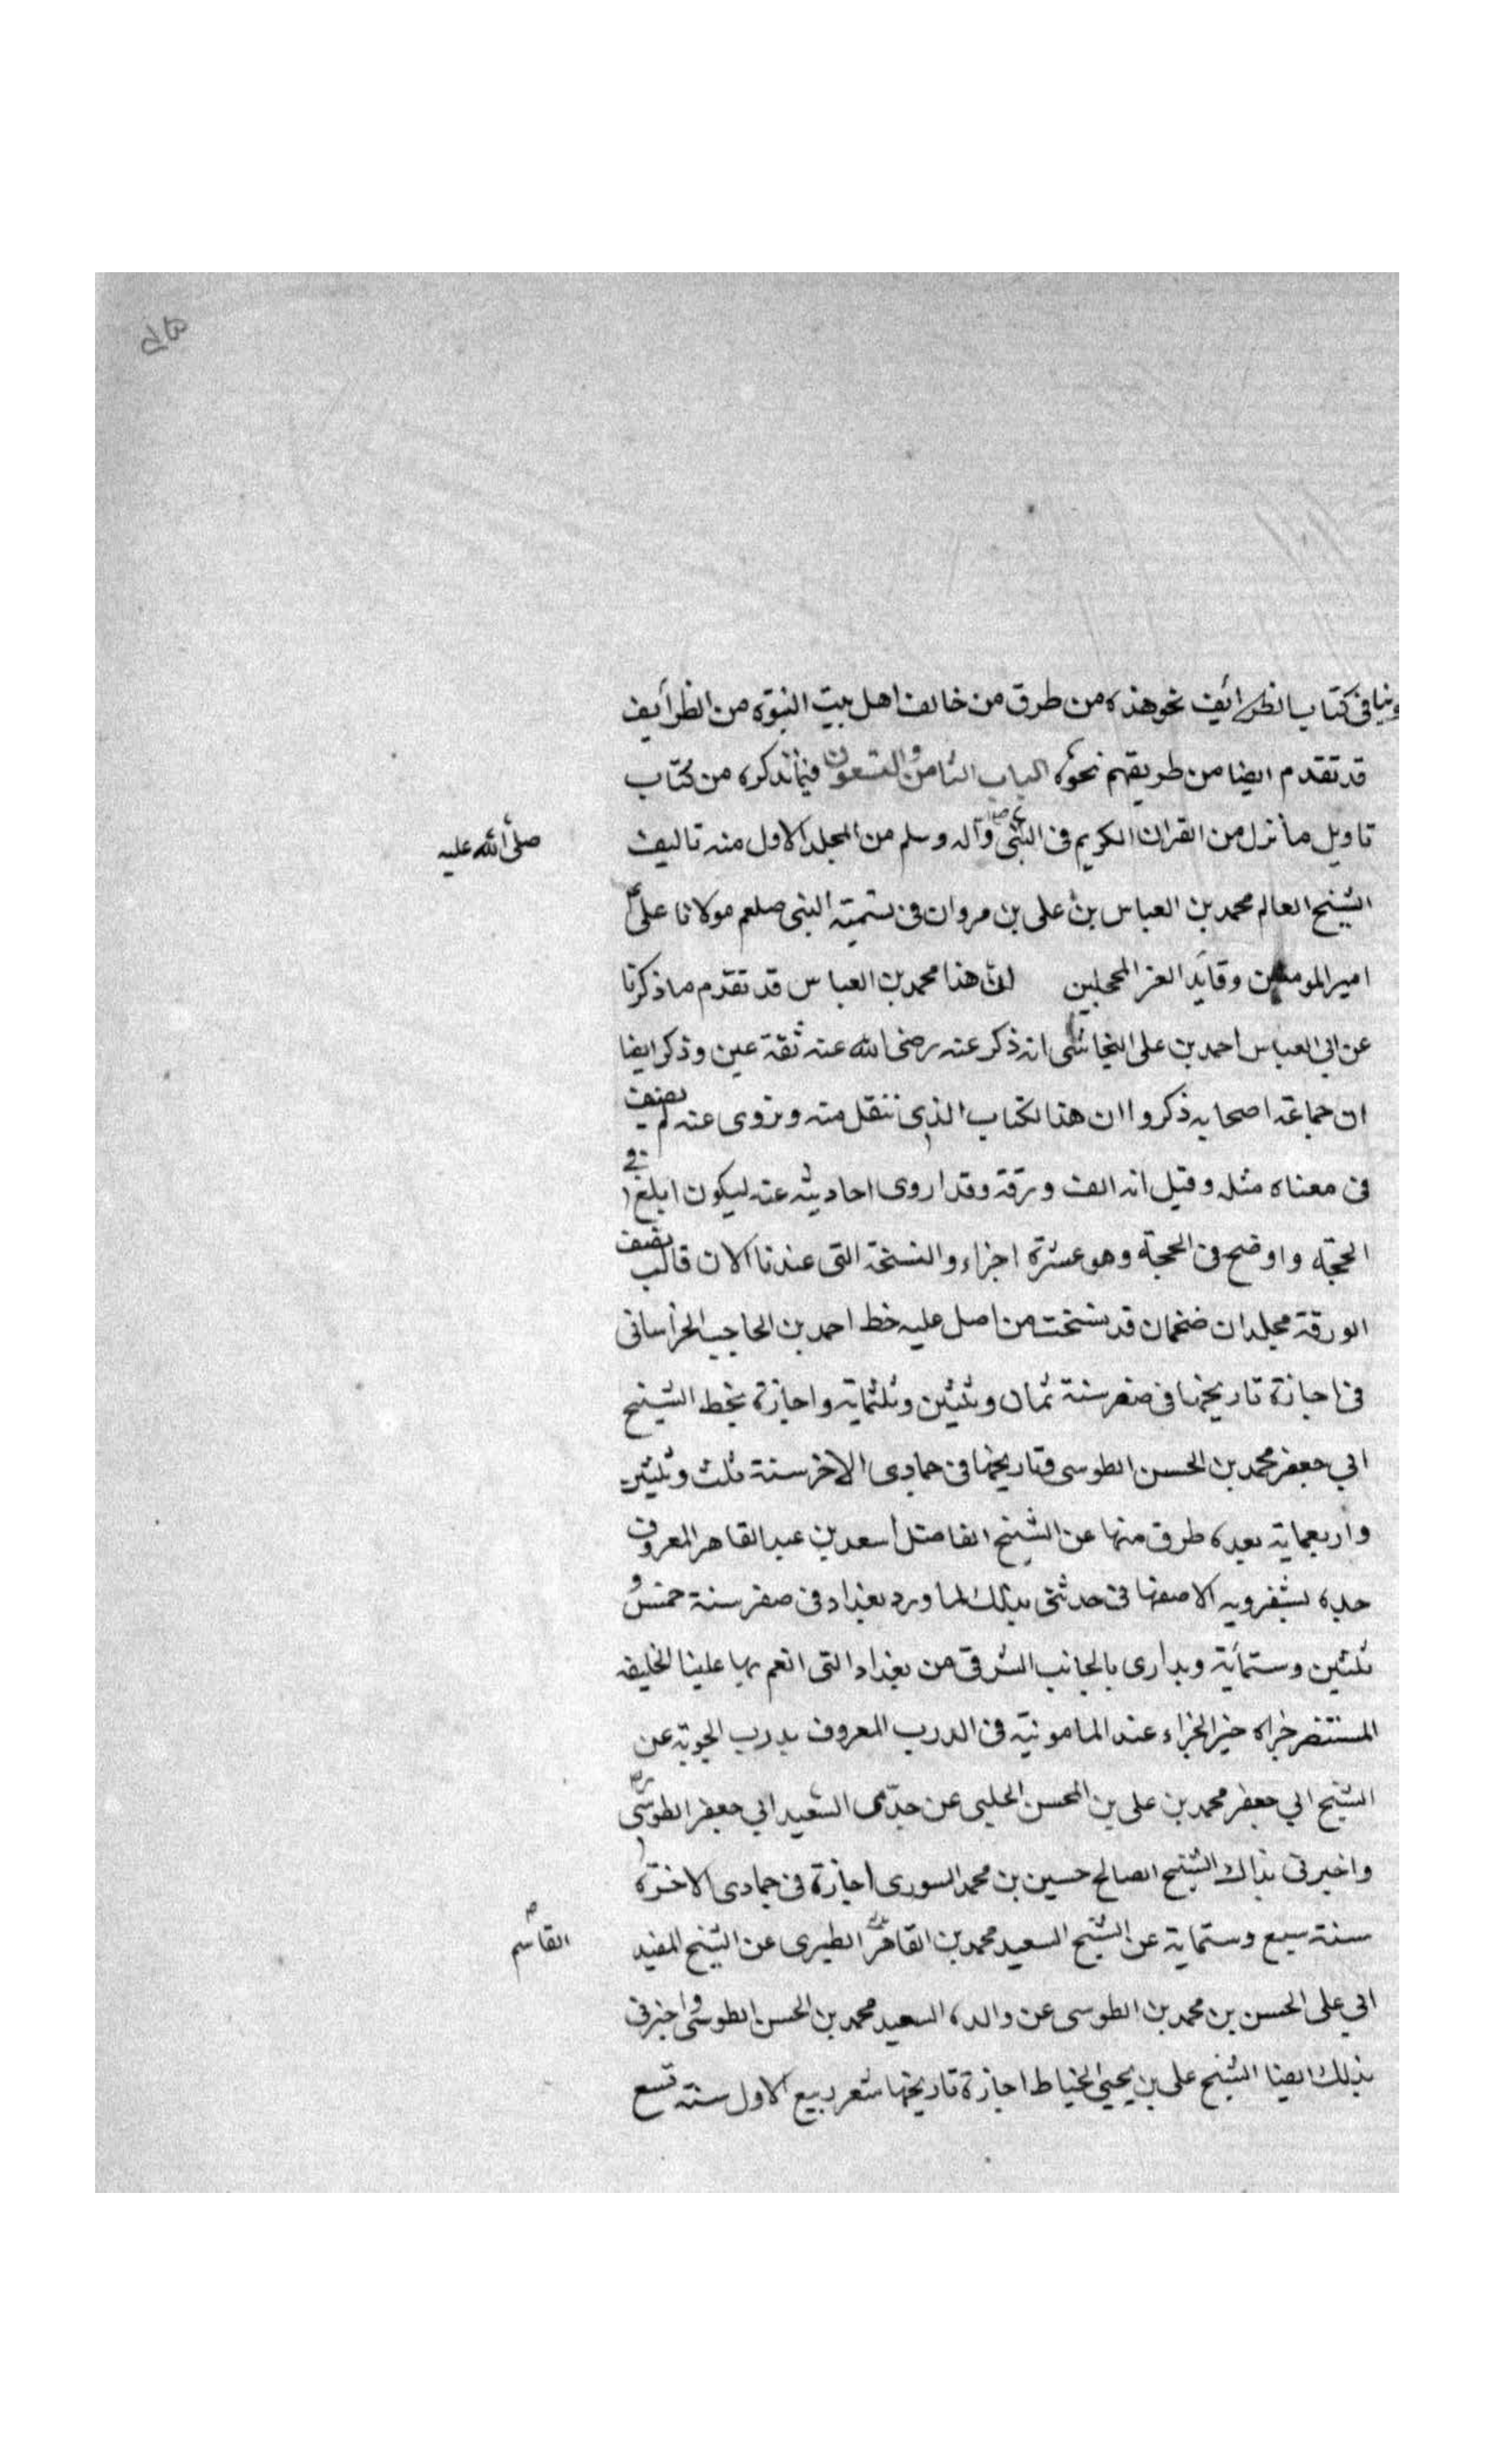 وينا فى كتاب الطرائف نحو هذه من طرق من خالف اهل بيت النبوة من الطرأيف
قد تقدم ايضا من طريقهم نحوه الباب الثامن والتسعون فيما نذكره من كتاب
تاويل ما نزل من القران الكريم فى النبى وآله وسلم من المجلد الاول منه تاليف
صلّى الله عليه
الشيخ العالم محمد بن العباس بن على بن مروان فى تسميته النبى صلعم مولانا على
امير المومنين وقايد الغر المحجلين انّ هذا محمد بن العباس قد تقدم ما ذكرنا
عن ابى العباس احمد بن على النجاشى انه ذكر عنه رضى الله عنه ثقة عين وذكر ايضا
ان جماعة اصحابه ذكروا ان هذا الكتاب الذى ننقل منه ونروى عنه لم يصنف
فى معناه مثله وقيل انه الف ورقة وقد اروى احاديثه عنه ليكون ابلغ فى
الحجّة واوضح فى المحجة وهو عشرة اجزاء والنسخة التى عندنا الان قالب نصف
الورقة مجلدان ضخمان قد نسخت من اصل عليه خط احمد بن الحاجب الخراسانى
فى اجازة تاريخها فى صفر سنة ثمان وثلثين وثلثماية واجازة بخط الشيخ
ابي جعفر محمد بن الحسن الطوسى وتاريخها فى جمادى الاخر سنة ثلث وثلثين
واربعماية بعده طرق منها عن الشيخ الفاضل أسعد بن عبد القاهر المعروف
جده بشفرويه الاصفهانى حدثنى بذلك لما ورد بغداد فى صفر سنة خمس و
ثلثين وستمأية وبدارى بالجانب الشرقى من بغداد التى انعم بها علينا الخليفه
المستنصر جزاه خير الجزاء عند المامونيّه فى الدرب المعروف بدرب الجوبة عن
الشيخ ابي جعفر محمد بن على بن المحسن الحلبى عن جدّى السعيد ابي جعفر الطوسى
واخبرنى بذلك الشيخ الصالح حسين بن محمد السورى اجازة فى جمادى الاخرة
سنة سبع وستماية عن الشيخ السعيد محمد بن القاهر الطبرى عن الشيخ المفيد
القاسم
ابي على الحسن بن محمد بن الطوسى عن والده السعيد محمد بن الحسن الطوسى واخبرنى
بذلك ايضا الشيخ على بن يحيى الخياط اجازة تاريخها شهر ربيع الاول سنة تسع